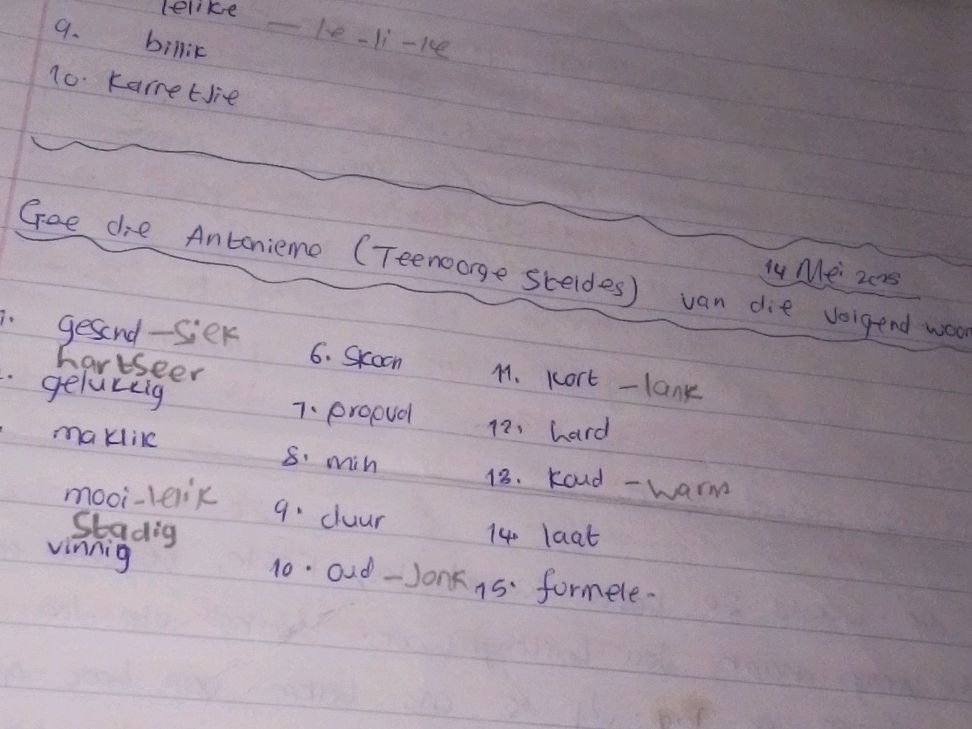 lelike — le-li-ke
9. billik
10. Karretjie
14 Mei 2025
Gee die Antonieme (Teenoorge Steldes) van die volgend woor
1. gesond - Siek
hartseer
gelukkig
maklik
mooi - lelik
Stadig
vinnig
6. Skoon
7. propvol
8. min
9. duur
10. oud - Jonk
11. kort - lank
12. hard
13. koud - warm
14. laat
15. formele.